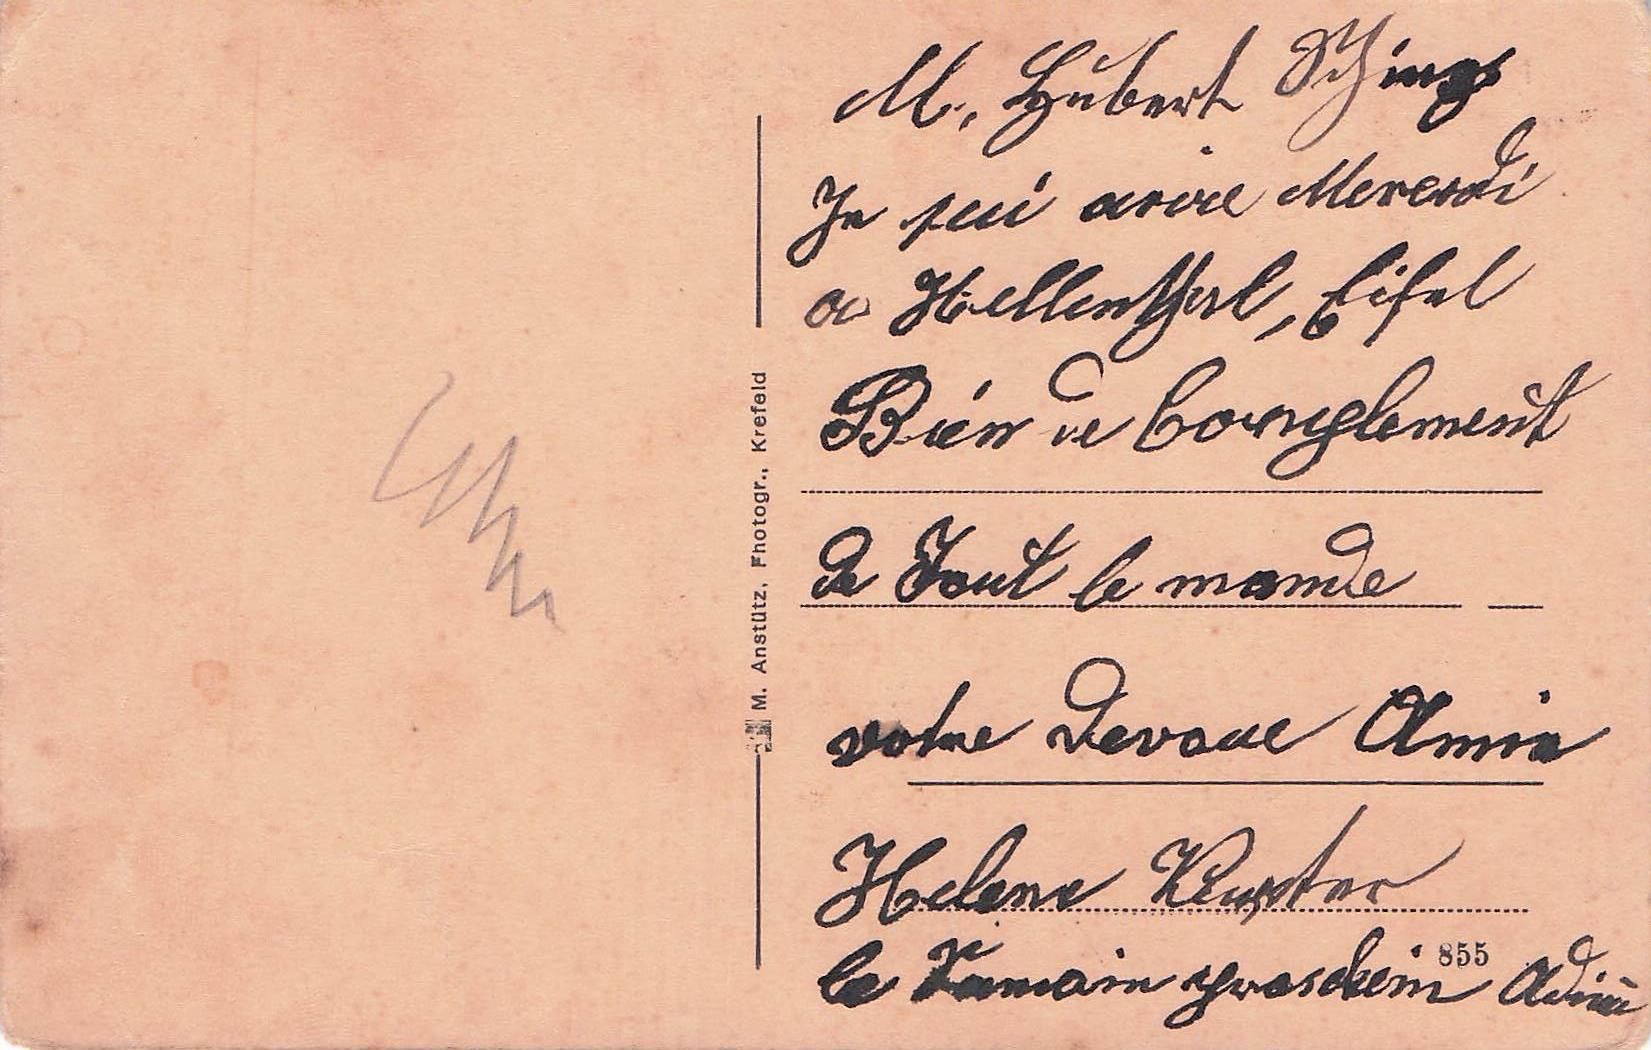 M. Hubert Schings
Je sui arive Merecrdi
a Hellenthal, Eifel
Bien de Compglement
de Tout le monde
votre Devoue Amie
Helene
la Samain proschein Adieu
M. Anstütz, Fhotogr., Krefeld
855